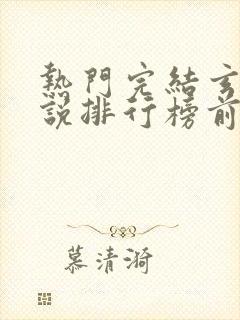 熱門完結玄
說排行榜前
慕清漪